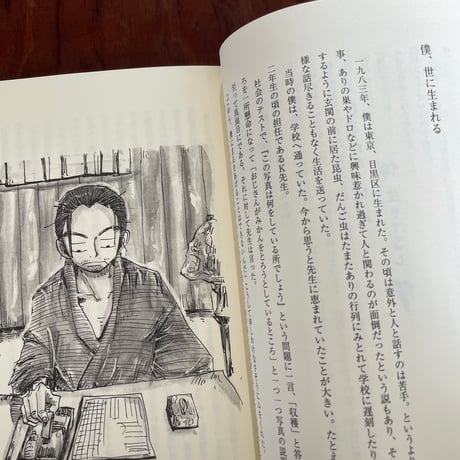 僕、世に生まれる
一九八三年、僕は東京、目黒区に生まれた。その頃は意外と人と話すのは苦手。というよ
事、ありの巣やドロなどに興味惹かれ過ぎて人と関わるのが面倒だったという説もあり、そ
するように玄関の前に居た昆虫、だんご虫はたまたありの行列にみとれて学校に遅刻したり
様な話尽きることもなく生活を送っていた。
当時の僕は、学校へ通っていた。今から思うと先生に恵まれていたことが大きい。たと
二年生の頃の担任であるK先生。
社会のテストで、この写真は何をしている所でしょう」という問題に一言、「収穫」と答
ろを一所懸命になって「おじさんがみかんをとろうとしているところ」と一つ一つ写真の説
引って真面目にである。それに対して先生は言った。